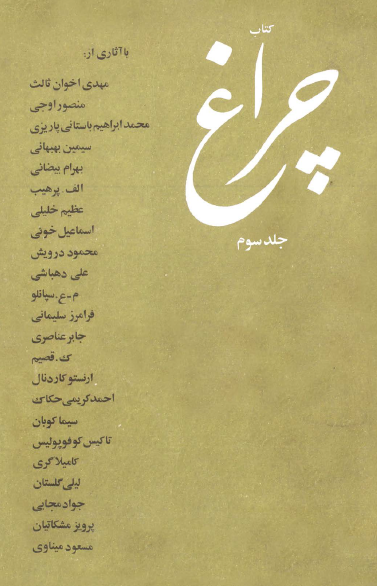 کتاب
چراغ
جلد سوم
با آثاری از:
مهدی اخوان ثالث
منصور اوجی
محمد ابراهیم باستانی پاریزی
سیمین بهبهانی
بهرام بیضائی
الف. پرهیب
عظیم خلیلی
اسماعیل خوئی
محمود درویش
علی دهباشی
م.ع.سپانلو
فرامرز سلیمانی
جابر عناصری
ک.قصیم
ارنستو کاردنال
احمد کریمی حکاک
سیما کوبان
تاکیس کوفوپولیس
کامیلا گری
لیلی گلستان
جواد مجابی
پرویز مشکاتیان
مسعود میناوی